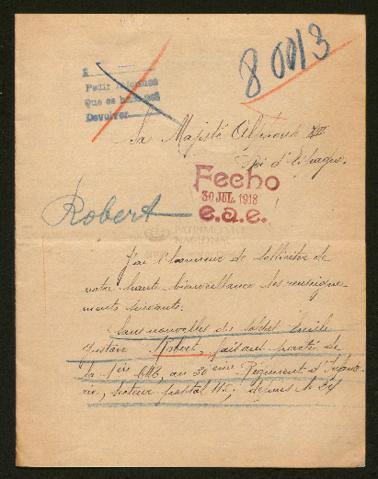 80013
Pedir
Que se
Devolver
Sa Majesté Alphonse XIII
Roi d'Espagne.
Fecho
30 JUL. 1918
e.a.e.
Robert
PATRIMONIO
NACIONAL
J'ai l'honneur de solliciter de
votre haute bienveillance les renseigne-
ments suivants:
Sans nouvelles du soldat Emile
Gustave Robert, faisant partie de
la 1ère au 30ème Régiment d'Infante-
rie, secteur postal 115, depuis le